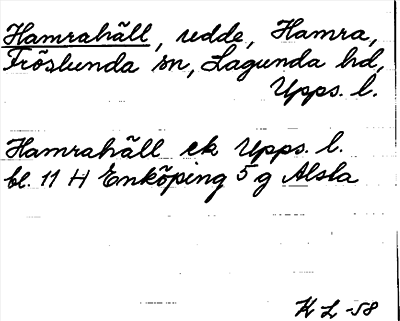 Hamrahäll, udde, Hamra,
Fröslunda sn, Lagunda hd,
Upps. l.
Hamrahäll ek Upps. l.
bl. 11 H Enköping 5 g Alsla
K L -58